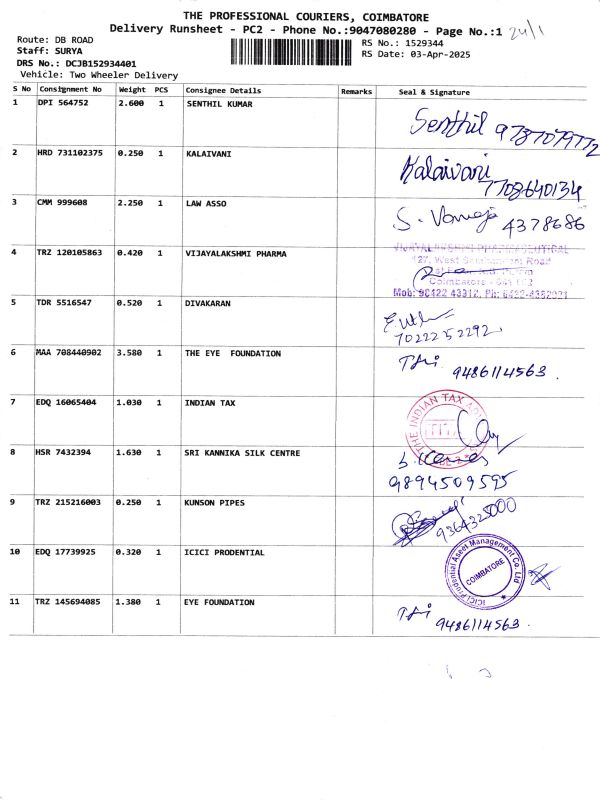 THE PROFESSIONAL COURIERS, COIMBATORE
Delivery Runsheet - PC2 - Phone No.:9047080280 - Page No.:1 24/1
Route: DB ROAD
RS No.: 1529344
Staff: SURYA
RS Date: 03-Apr-2025
DRS No.: DCJB152934401
Vehicle: Two Wheeler Delivery
S No Consignment No Weight PCS Consignee Details Remarks Seal & Signature
1 DPI 564752 2.600 1 SENTHIL KUMAR
Senthil 9787079772
2 HRD 731102375 0.250 1 KALAIVANI
Kalaivani
7708640134
3 CMM 999608 2.250 1 LAW ASSO
4378686
4 TRZ 120105863 0.420 1 VIJAYALAKSHMI PHARMA
VIJAYALAKSHMI PHARMACEUTICAL
127, West Sambandam Road
Coimbatore
Mob: 90422 43312, Ph:
5 TDR 5516547 0.520 1 DIVAKARAN
7022252292
6 MAA 708440902 3.580 1 THE EYE FOUNDATION
9486114563.
7 EDQ 16065404 1.030 1 INDIAN TAX
THE INDIAN TAX
8 HSR 7432394 1.630 1 SRI KANNIKA SILK CENTRE
9894509595
9 TRZ 215216003 0.250 1 KUNSON PIPES
9364325000
10 EDQ 17739925 0.320 1 ICICI PRODENTIAL
ICICI Prudential Asset Management Co. Ltd
COIMBATORE
11 TRZ 145694085 1.380 1 EYE FOUNDATION
9486114563.